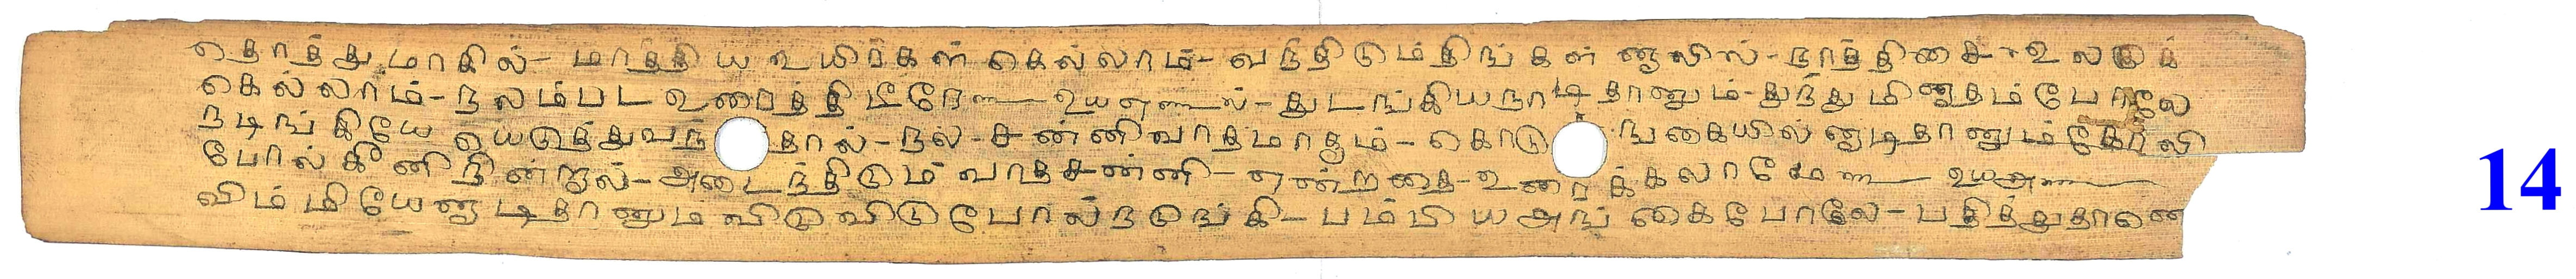 தொத்து மாகில்- மாத்திய உயிர்கள் கெல்லாம்- வந்திடும் திங்கள் னூலில்- நாத்திசை- உலகுக்
கெல்லாம்- நலம்பட உரைத்தி மீரே துடங்கிய நாடிதானும்- துந்துமி னாதம் போலே
நடிங்கியே யெடுத்துவந் தால்- நல்- சன்னிவாதமாகும்- கொடு ங்கையில் னாடிதானும் கோலி
போல் கீனி நின்றால்- அடைந்திடும் வாதசன்னி- என்றதை- உரைக்கலாமே
விம்மியே னாடிதானும் விடுவிடு போல் நடுங்கி- பம்பிய அங் கைபோலே- பதித்துதானெ
14